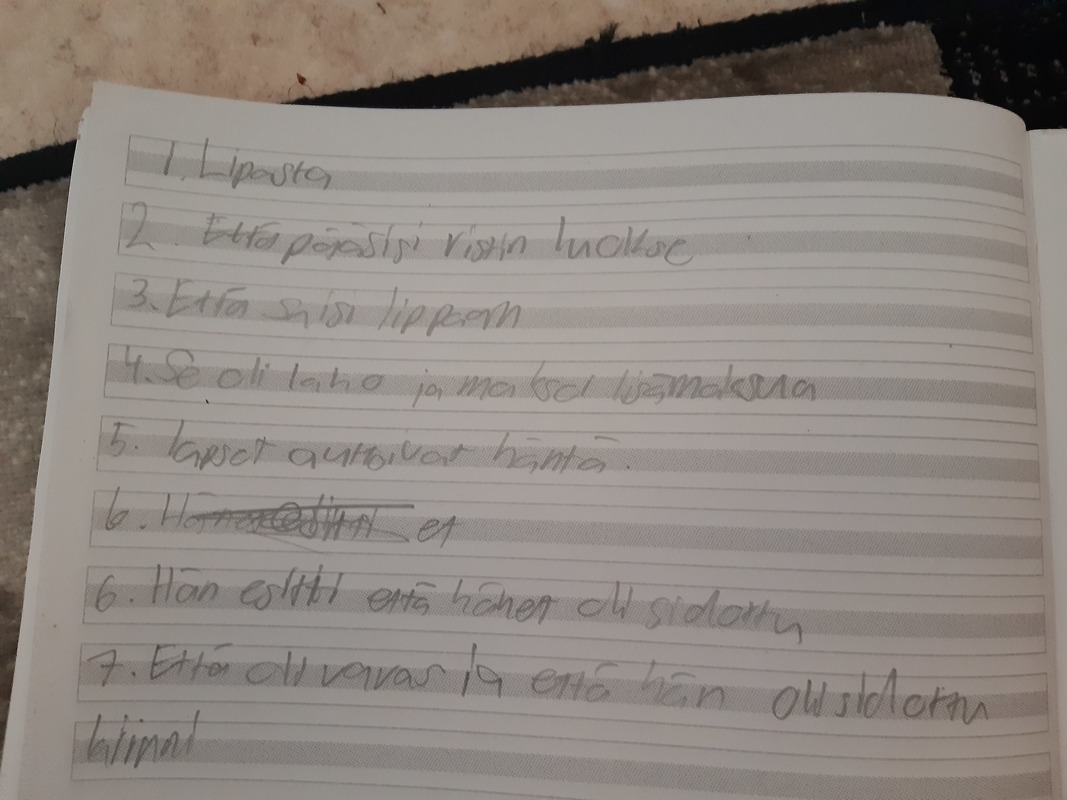 1. Lipasta
2. Että pääsisi ristin luokse
3. Että saisi lippaan
4. Se oli laho ja maksoi lisämaksua
5. lapset auttoivat häntä.
6. et
6. Hän esitti että hänet oli sidottu
7. Että oli varas ja että hän oli sidottu
kiinni